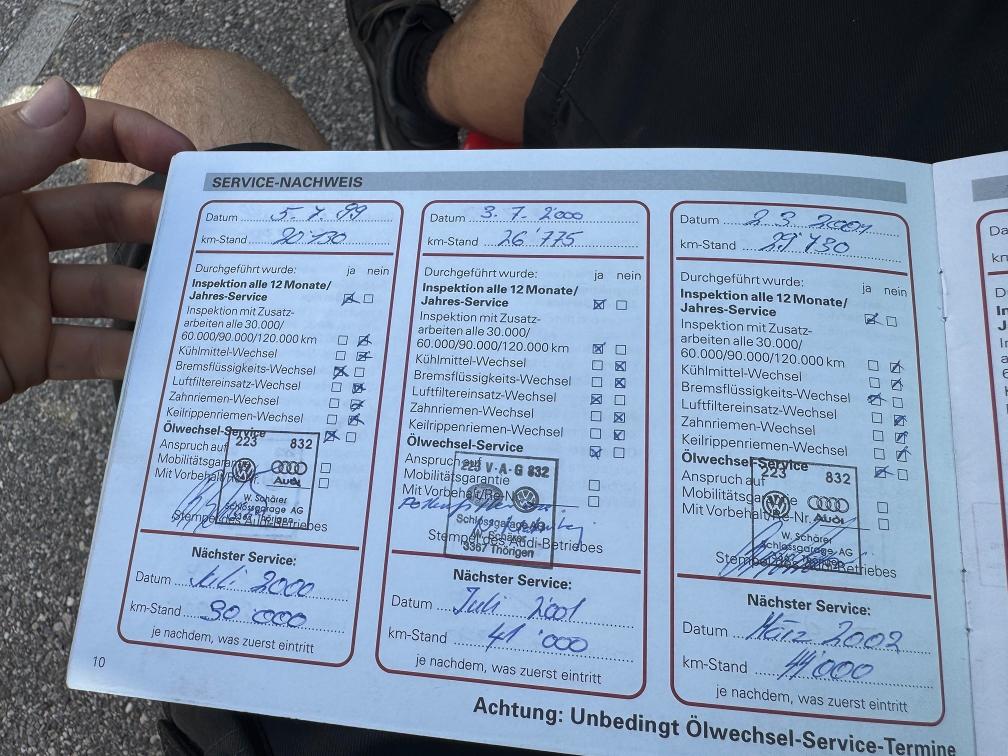 SERVICE-NACHWEIS
Datum 5. 7. 99
km-Stand 20'130
Durchgeführt wurde: ja nein
Inspektion alle 12 Monate/
Jahres-Service
Inspektion mit Zusatz-
arbeiten alle 30.000/
60.000/90.000/120.000 km
Kühlmittel-Wechsel
Bremsflüssigkeits-Wechsel
Luftfiltereinsatz-Wechsel
Zahnriemen-Wechsel
Keilrippenriemen-Wechsel
Ölwechsel-Service
223 832
Anspruch auf
Mobilitätsgarantie
Mit Vorbehalt/Re-Nr.
Audi
W. Schärer
Schlossgarage AG
3367 Thörigen
Stempel des Audi-Betriebes
Nächster Service:
Datum Juli 2000
km-Stand 30'000
je nachdem, was zuerst eintritt
10
Datum 3. 7. 2000
km-Stand 26'775
Durchgeführt wurde: ja nein
Inspektion alle 12 Monate/
Jahres-Service
Inspektion mit Zusatz-
arbeiten alle 30.000/
60.000/90.000/120.000 km
Kühlmittel-Wechsel
Bremsflüssigkeits-Wechsel
Luftfiltereinsatz-Wechsel
Zahnriemen-Wechsel
Keilrippenriemen-Wechsel
Ölwechsel-Service
223 V·A·G 832
Anspruch auf
Mobilitätsgarantie
Mit Vorbehalt/Re-Nr.
Schlossgarage AG
W. Schärer
3367 Thörigen
Stempel des Audi-Betriebes
Nächster Service:
Datum Juli 2001
km-Stand 41'000
je nachdem, was zuerst eintritt
Datum 2. 3. 2001
km-Stand 29'130
Durchgeführt wurde: ja nein
Inspektion alle 12 Monate/
Jahres-Service
Inspektion mit Zusatz-
arbeiten alle 30.000/
60.000/90.000/120.000 km
Kühlmittel-Wechsel
Bremsflüssigkeits-Wechsel
Luftfiltereinsatz-Wechsel
Zahnriemen-Wechsel
Keilrippenriemen-Wechsel
Ölwechsel-Service
223 832
Anspruch auf
Mobilitätsgarantie
Mit Vorbehalt/Re-Nr.
Audi
W. Schärer
Schlossgarage AG
Stempel des Audi-Betriebes
Nächster Service:
Datum März 2002
km-Stand 44'000
je nachdem, was zuerst eintritt
Achtung: Unbedingt Ölwechsel-Service-Termine